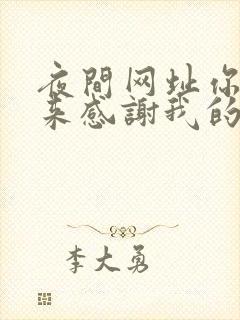 夜間网址你
来感謝我的
李大勇